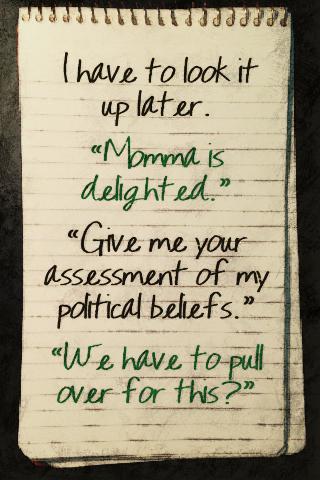 I have to look it
up later.
“Momma is
delighted.”
“Give me your
assessment of my
political beliefs.”
“We have to pull
over for this?”